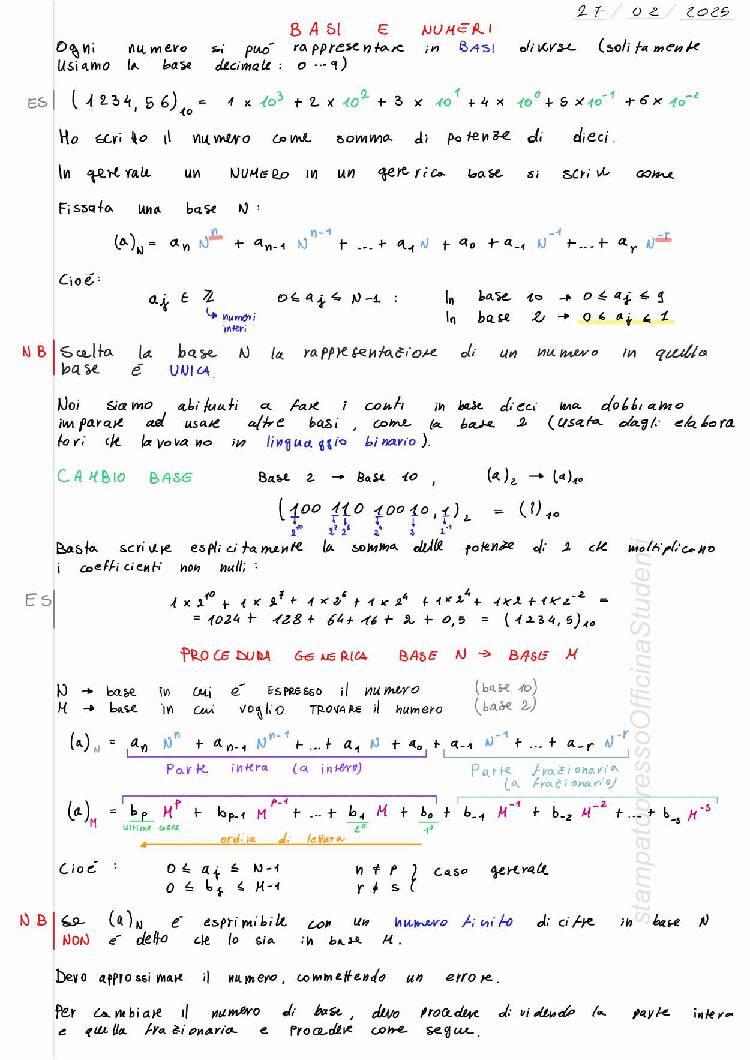 27/02/2025
BASI E NUMERI
Ogni numero si può rappresentare in BASI diverse (solitamente
usiamo la base decimale: 0 ... 9)
ES (1234,56)₁₀ = 1 x 10³ + 2 x 10² + 3 x 10¹ + 4 x 10⁰ + 5 x 10⁻¹ + 6 x 10⁻²
Ho scritto il numero come somma di potenze di dieci.
In generale un NUMERO in un generica base si scrive come
Fissata una base N:
(a)_N = a_n N^n + a_{n-1} N^{n-1} + ... + a_1 N + a_0 + a_{-1} N^{-1} + ... + a_r N^{-r}
Cioé:
a_j ∈ ℤ 0 ≤ a_j ≤ N-1 : In base 10 → 0 ≤ a_j ≤ 9
↳ numeri In base 2 → 0 ≤ a_j ≤ 1
interi
NB Scelta la base N la rappresentazione di un numero in quella
base é UNICA.
Noi siamo abituati a fare i conti in base dieci ma dobbiamo
imparare ad usare altre basi, come la base 2 (usata dagli elabora
tori che lavorano in linguaggio binario).
CAMBIO BASE Base 2 → Base 10, (a)₂ → (a)₁₀
(100 110 100 10,1)₂ = (?)₁₀
2¹⁰ 2⁷ 2⁶ 2⁴ 2 2⁻¹
Basta scrivere esplicitamente la somma delle potenze di 2 che moltiplicano
i coefficienti non nulli:
ES 1 x 2¹⁰ + 1 x 2⁷ + 1 x 2⁶ + 1 x 2⁴ + 1 x 2⁴ + 1 x 2 + 1 x 2⁻² =
= 1024 + 128 + 64 + 16 + 2 + 0,5 = (1234,5)₁₀
PROCEDURA GENERICA BASE N → BASE M
N → base in cui é ESPRESSO il numero (base 10)
M → base in cui voglio TROVARE il numero (base 2)
(a)_N = a_n N^n + a_{n-1} N^{n-1} + ... + a_1 N + a_0 + a_{-1} N^{-1} + ... + a_{-r} N^{-r}
Parte intera (a intero) Parte frazionaria
(a frazionario)
(a)_M = b_p M^p + b_{p-1} M^{p-1} + ... + b_1 M + b_0 + b_{-1} M^{-1} + b_{-2} M^{-2} + ... + b_{-s} M^{-s}
2° 1°
ordine di lettura
Cioé: 0 ≤ a_j ≤ N-1 n ≠ p } caso generale
0 ≤ b_j ≤ M-1 r ≠ s
NB Se (a)_N é esprimibile con un numero finito di cifre in base N
NON é detto che lo sia in base M.
Devo approssimare il numero, commettendo un errore.
Per cambiare il numero di base, devo procedere dividendo la parte intera
e quella frazionaria e procedere come segue.
stampatopressoOfficinaStudenti